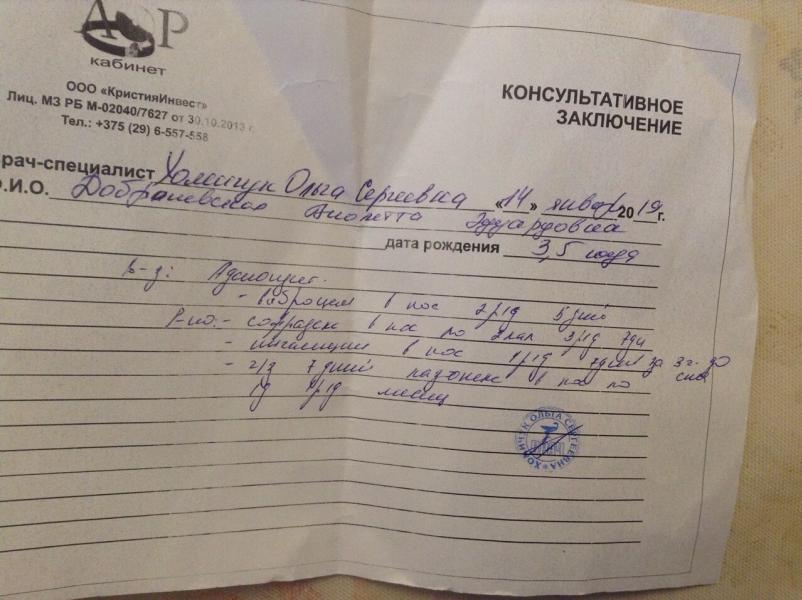 ЛОР
кабинет
ООО «КристияИнвест»
Лиц. МЗ РБ М-02040/7627 от 30.10.2013 г.
Тел.: +375 (29) 6-557-558
КОНСУЛЬТАТИВНОЕ
ЗАКЛЮЧЕНИЕ
рач-специалист Хомичук Ольга Сергеевна «14» января 2019г.
.И.О. Виолетта Эдуардовна
дата рождения 3,5 года
Аденоидит.
- виброцил в нос 2р/д 5 дней
- софрадекс в нос по 2 кап 3р/д 7дн
- ингаляции в нос 1р/д 7дней за 3 ч. до сна
- ч/з 7 дней назонекс в нос по
1д 1р/д месяц
ХОМИЧУК ОЛЬГА СЕРГЕЕВНА